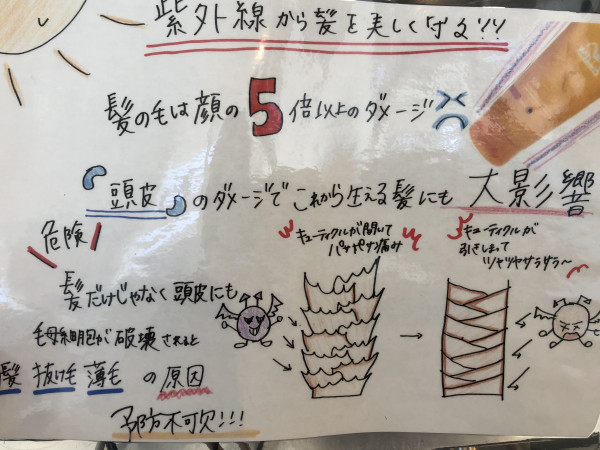 紫外線から髪を美しくなる!!
髪の毛は顔の5倍以上のダメージ
頭皮のダメージでこれから生える髪にも大影響
危険
キューティクルが開いて
パサパサ痛み
キューティクルが
引きしまって
ツヤツヤサラサラ〜
髪だけじゃなく頭皮にも
毛母細胞が破壊されると
髪 抜け毛 薄毛 の原因
予防不可欠!!!